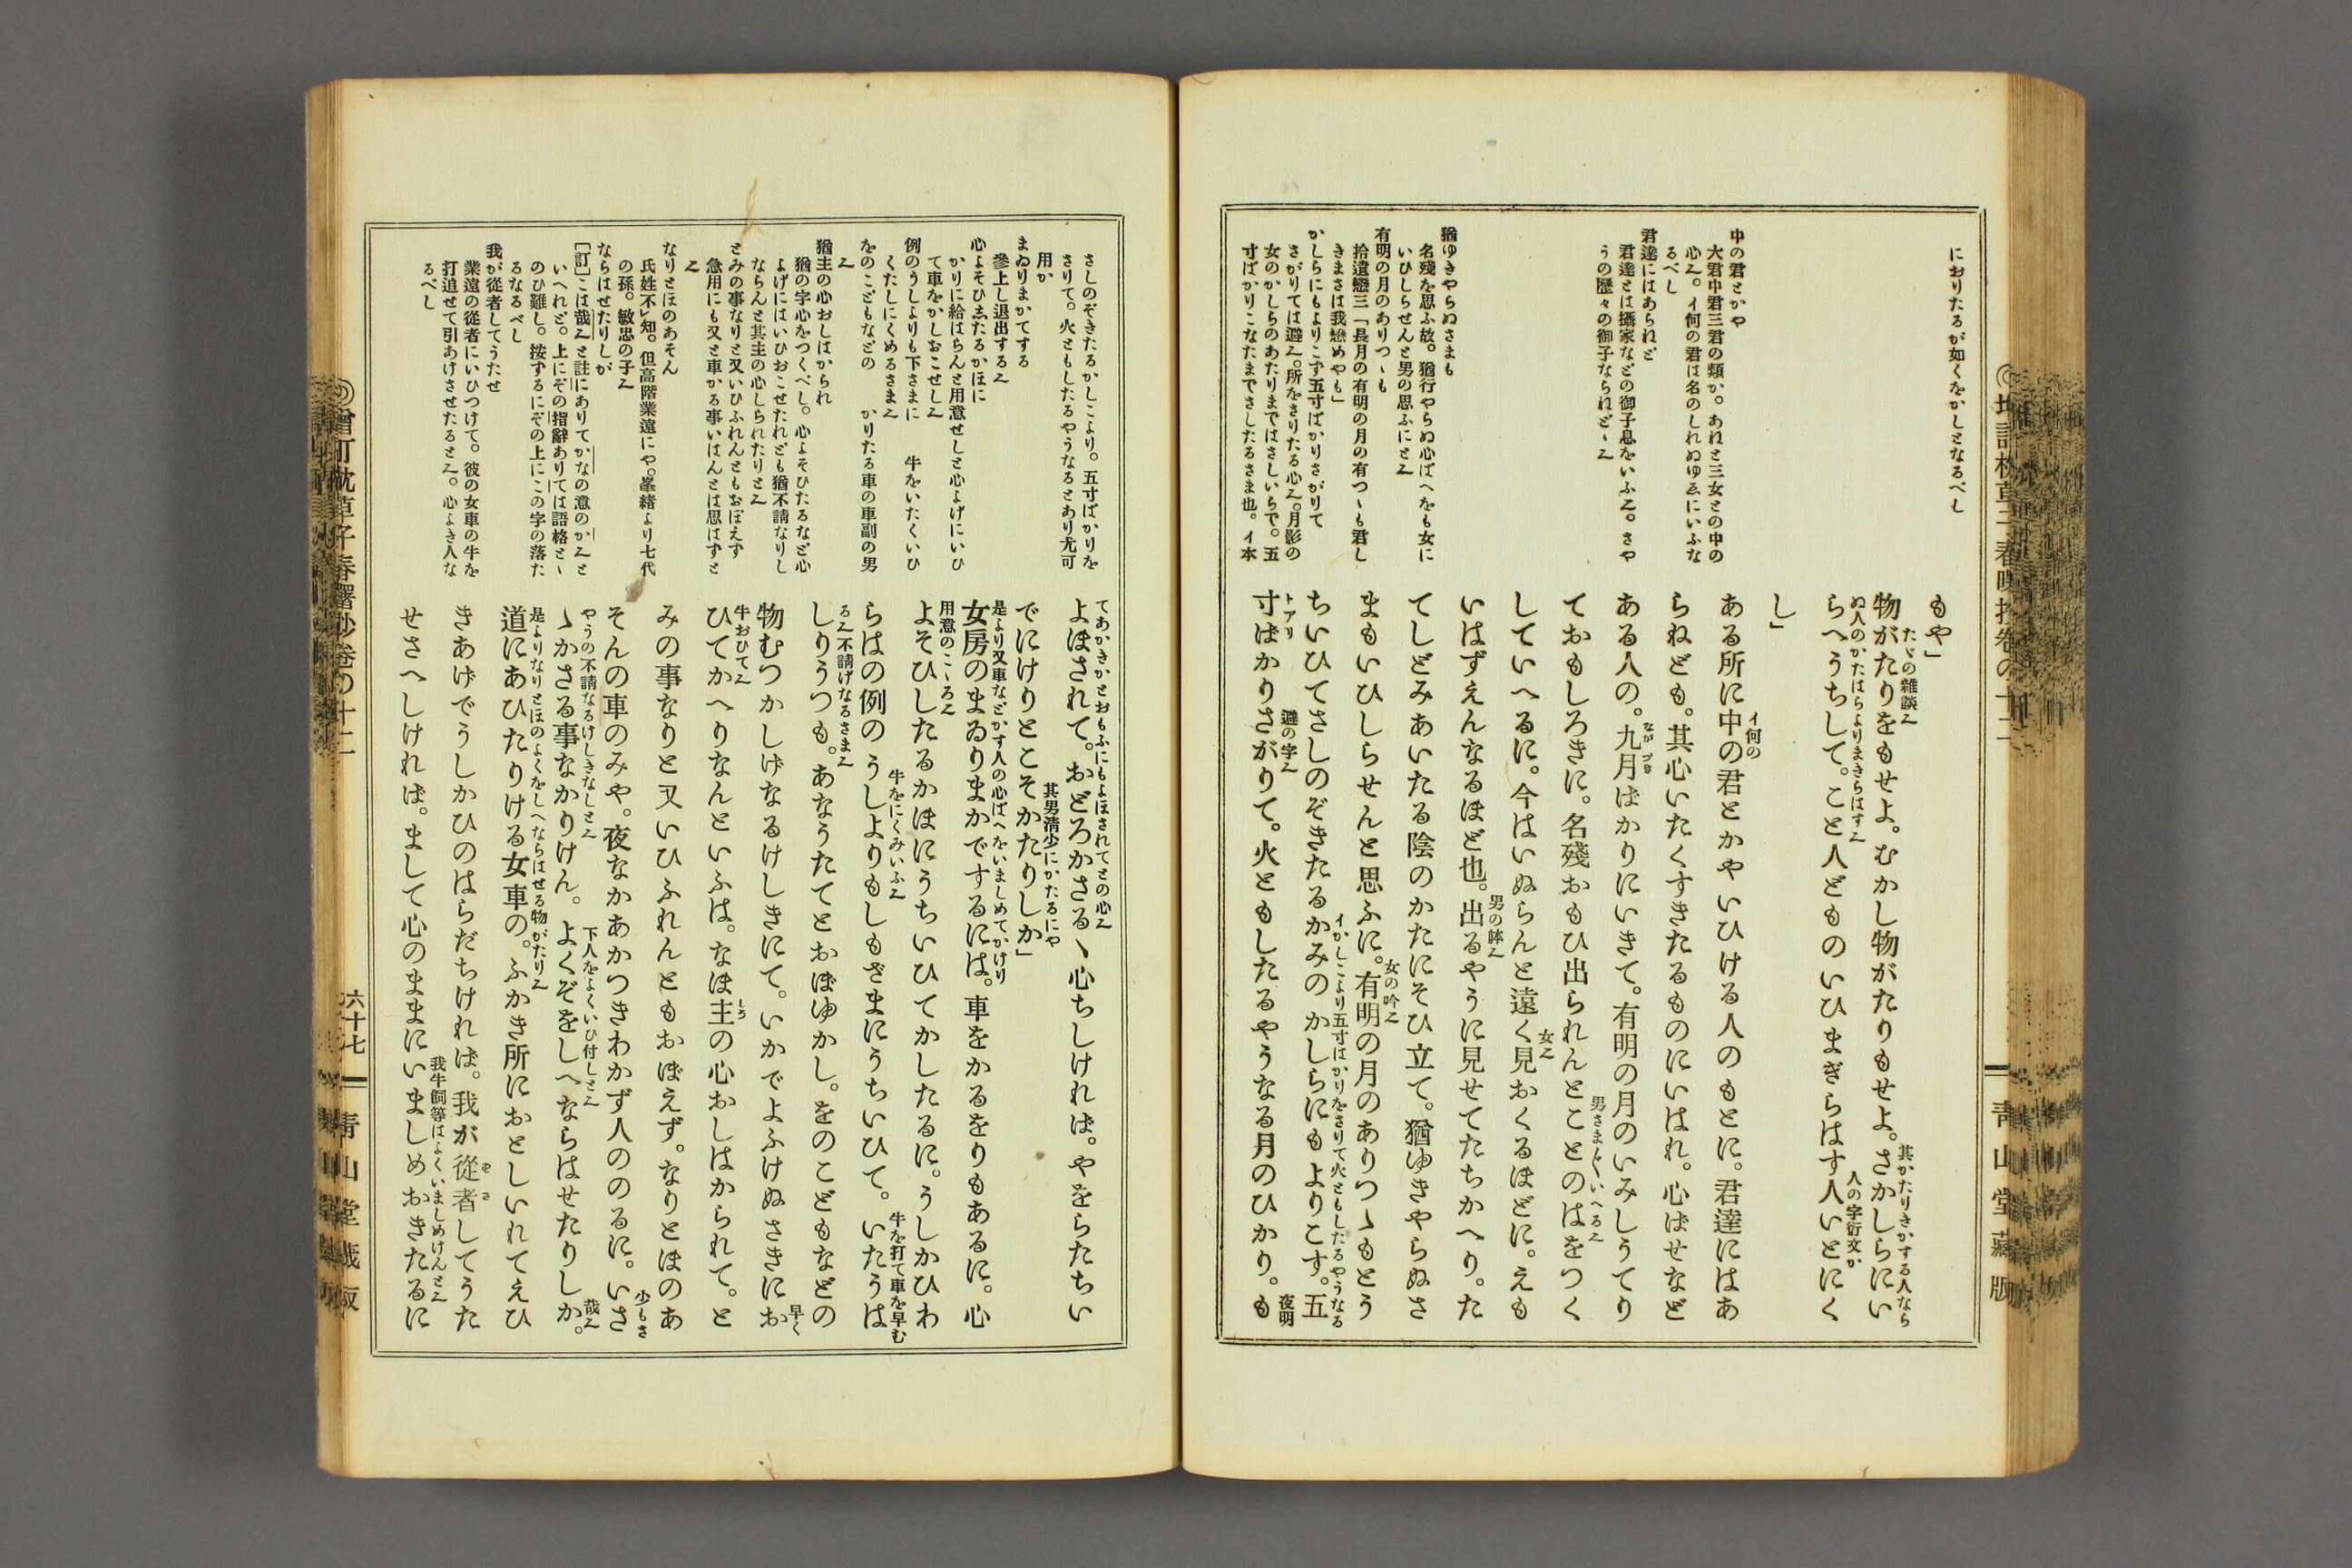 におりたるが如くをかしとなるべし
中の君とかや
大君中君三君の類か。あねと三女との中の
心之。イ何の君は名のしれぬゆゑにいふな
るべし
君達にはあられど
君達とは攝家などの御子息をいふ之。さや
うの歷々の御子ならねど〻之
猶ゆきやらぬさまも
名殘を思ふ故。猶行やらぬ心ばへをも女に
いひしらせんと男の思ふにと之
有明の月のありつゝも
拾遺戀三「長月の有明の月の有つゝも君し
きまさは我戀めやも」
かしらにもよりこず五寸ばかりさがりて
さがりては避之。所をさりたる心之。月影の
女のかしらのあたりまではさしいらで。五
寸ばかりこなたまでさしたるさま也。イ本
もや」
たゞの雜談之
物がたりをもせよ。むかし物がたりもせよ。さかしらにい
其かたりきかする人なら
ぬ人のかたはらよりまきらはす之
らへうちして。こと人どものいひまぎらはす人いとにく
人の字衍文か
し」
ある所に中の君とかやいひける人のもとに。君達にはあ
イ何の
らねども。其心いたくすきたるものにいはれ。心ばせなど
ある人の。九月ばかりにいきて。有明の月のいみしうてり
ながづき
ておもしろきに。名殘おもひ出られんとことのはをつく
男さま〲いへる之
していへるに。今はいぬらんと遠く見おくるほどに。えも
女之
いはずえんなるほど也。出るやうに見せてたちかへり。た
男の躰之
てしどみあいたる陰のかたにそひ立て。猶ゆきやらぬさ
まもいひしらせんと思ふに。有明の月のありつゝもとう
女の吟之
ちいひてさしのぞきたるかみのかしらにもよりこす。五
イかしこより五寸ばかりをさりて火ともしたるやうなる
寸ばかりさがりて。火ともしたるやうなる月のひかり。も
トアリ
避の字之
夜明
青山堂藏版
さしのぞきたるかしこより。五寸ばかりを
さりて。火ともしたるやうなるとあり尤可
用か
まゐりまかてする
參上し退出する之
心よそひ志たるかほに
かりに給はらんと用意せしと心よげにいひ
て車をかしおこせし之
例のうしよりも下さまに 牛をいたくいひ
くたしにくめるさま之
をのこどもなどの かりたる車の車副の男
之
猶主の心おしはかられ
猶の字心をつくべし。心よそひたるなど心
よげにはいひおこせたれども猶不請なりし
ならんと其主の心しられたりと之
とみの事なりと又いひふれんともおぼえず
急用にも又と車かる事いはんとは思はずと
之
なりとほのあそん
氏姓不知。但高階業遠にや。峯緒より七代
の孫。敏忠の子之
ならはせたりしが
[訂]こは哉之と註にありてかなの意のか之と
いへれど。上にぞの指辭ありては語格とゝ
のひ難し。按ずるにぞの上にこの字の落た
るなるべし
我が從者してうたせ
業遠の從者にいひつけて。彼の女車の牛を
打追せて引あげさせたると之。心よき人な
るべし
てあかきかとおもふにもよほされてとの心之
よほされて。おどろかさるゝ心ちしけれは。やをらたちい
でにけりとこそかたりしか」
其男淸少にかたるにや
是より又車などかす人の心ばへをいましめてかけり
女房のまゐりまかでするには。車をかるをりもあるに。心
用意のこゝろ之
よそひしたるかほにうちいひてかしたるに。うしかひわ
牛をにくみいふ之
らはの例のうしよりもしもざまにうちいひて。いたうは
牛を打て車を早む
る之不請げなるさま之
しりうつも。あなうたてとおぼゆかし。をのこどもなどの
物むつかしげなるけしきにて。いかでよふけぬさきにお
早く
牛おひて之
ひてかへりなんといふは。なほ主の心おしはかられて。と
しう
みの事なりと又いひふれんともおぼえず。なりとほのあ
そんの車のみや。夜なかあかつきわかず人ののるに。いさ
少もさ
やうの不請なるけしきなしと之
ゝかさる事なかりけん。よくぞをしへならはせたりしか。
下人をよくいひ付しと之
哉之
是よりなりとほのよくをしへならはせる物がたり之
道にあひたりける女車の。ふかき所におとしいれてえひ
きあげでうしかひのはらだちければ。我が從者してうた
ずさ
我牛飼等はよくいましめけんと之
せさへしければ。まして心のままにいましめおきたるに
増訂枕草子春曙抄卷の十二
六十七
青山堂藏版